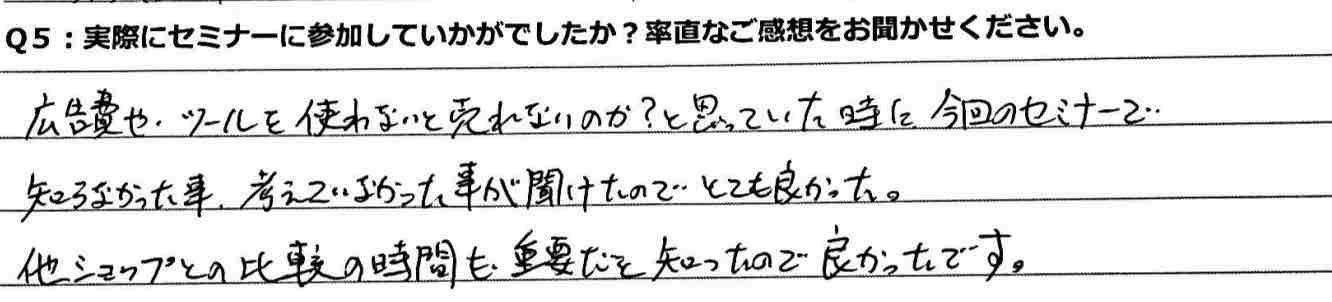 Q5：実際にセミナーに参加していかがでしたか？率直なご感想をお聞かせください。
広告費や、ツールを使わないと売れないのか？と思っていた時に、今回のセミナーで
知らなかった事、考えていなかった事が聞けたのでとても良かった。
他ショップとの比較の時間も、重要だと知ったので良かったです。